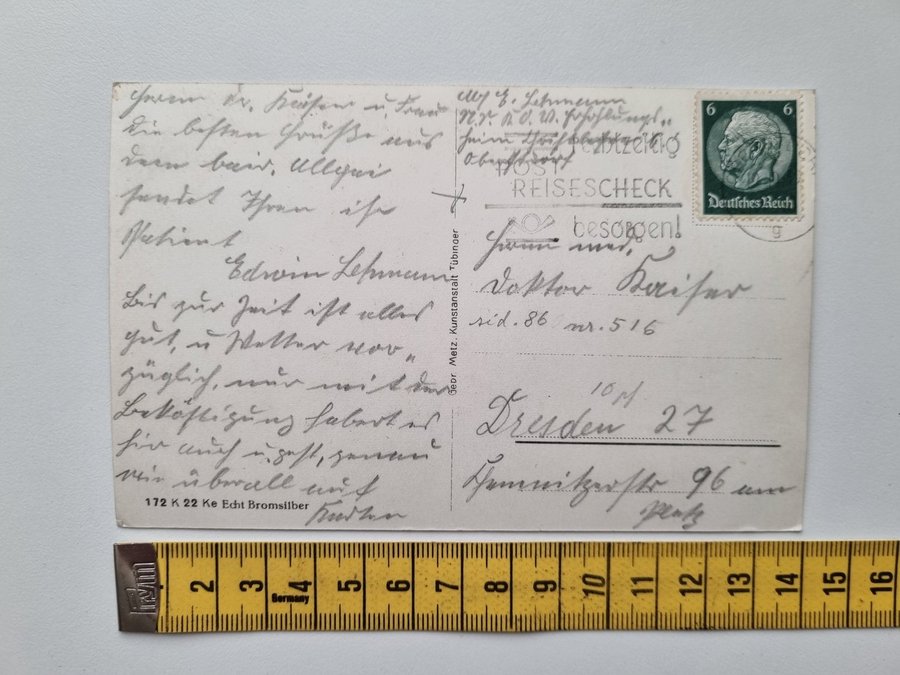 Herrn Dr. Kaiser u. Frau
die besten Grüße aus
dem bair. Allgäu
sendet Ihnen ihr
Patient
Edwin Lehmann
Bis zur Zeit ist alles
gut, u Wetter vor„
züglich, nur mit der
Beköstigung habert es
hir auch u.
wie überall auf
Karten
172 K 22 Ke Echt Bromsilber
Gebr. Metz, Kunstanstalt Tübingen
Abs E. Lehmann
Erholungs„
heim
Oberstdorf
rechtzeitig
POST
REISESCHECK
besorgen!
6 6
Deutsches Reich
g
Herrn med.
Doktor Kaiser
sid. 86 nr. 516
10 pf
Dresden 27
Chemnitzerstr 96 am
Platz
2 3 4 5 6 7 8 9 10 11 12 13 14 15 16
Germany